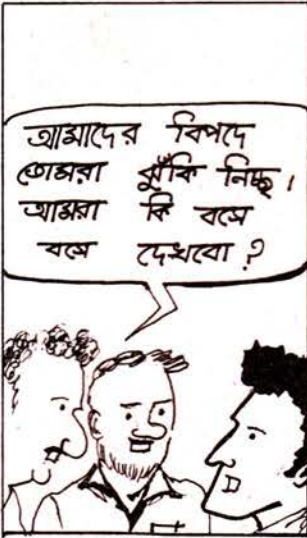 আমাদের বিপদে
তোমরা ঝুঁকি নিচ্ছ।
আমরা কি বসে
বসে দেখবো?